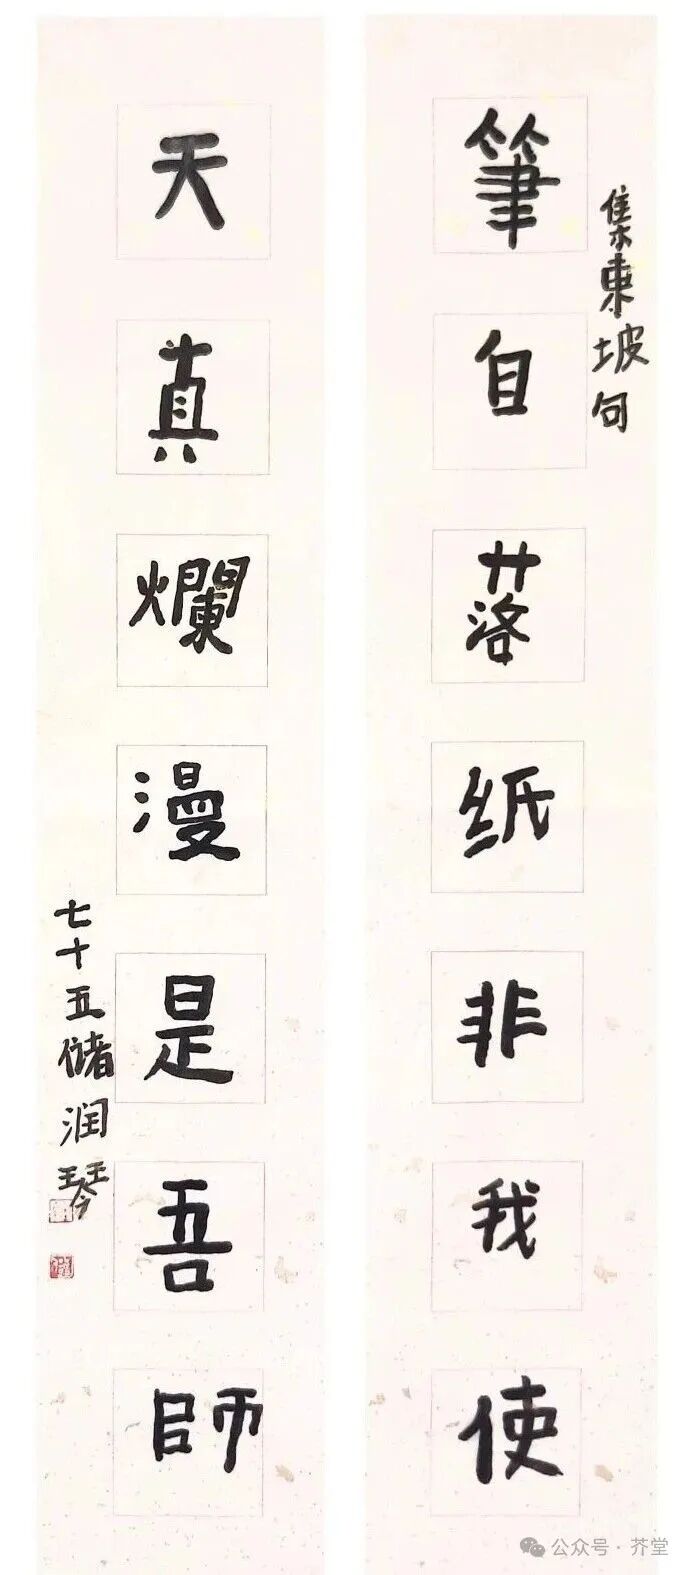 集東坡句
筆自落纸非我使
天真爛漫是吾師
七十五儲润琴
公众号·芥堂